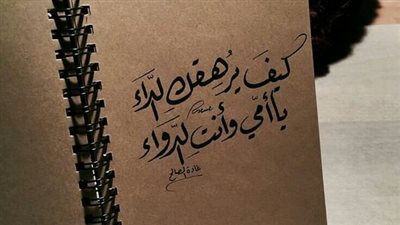 كيفَ يُرهِقكِ الدّاءَ
يا أمّي وأنتِ الدّواء
غادة الصالح